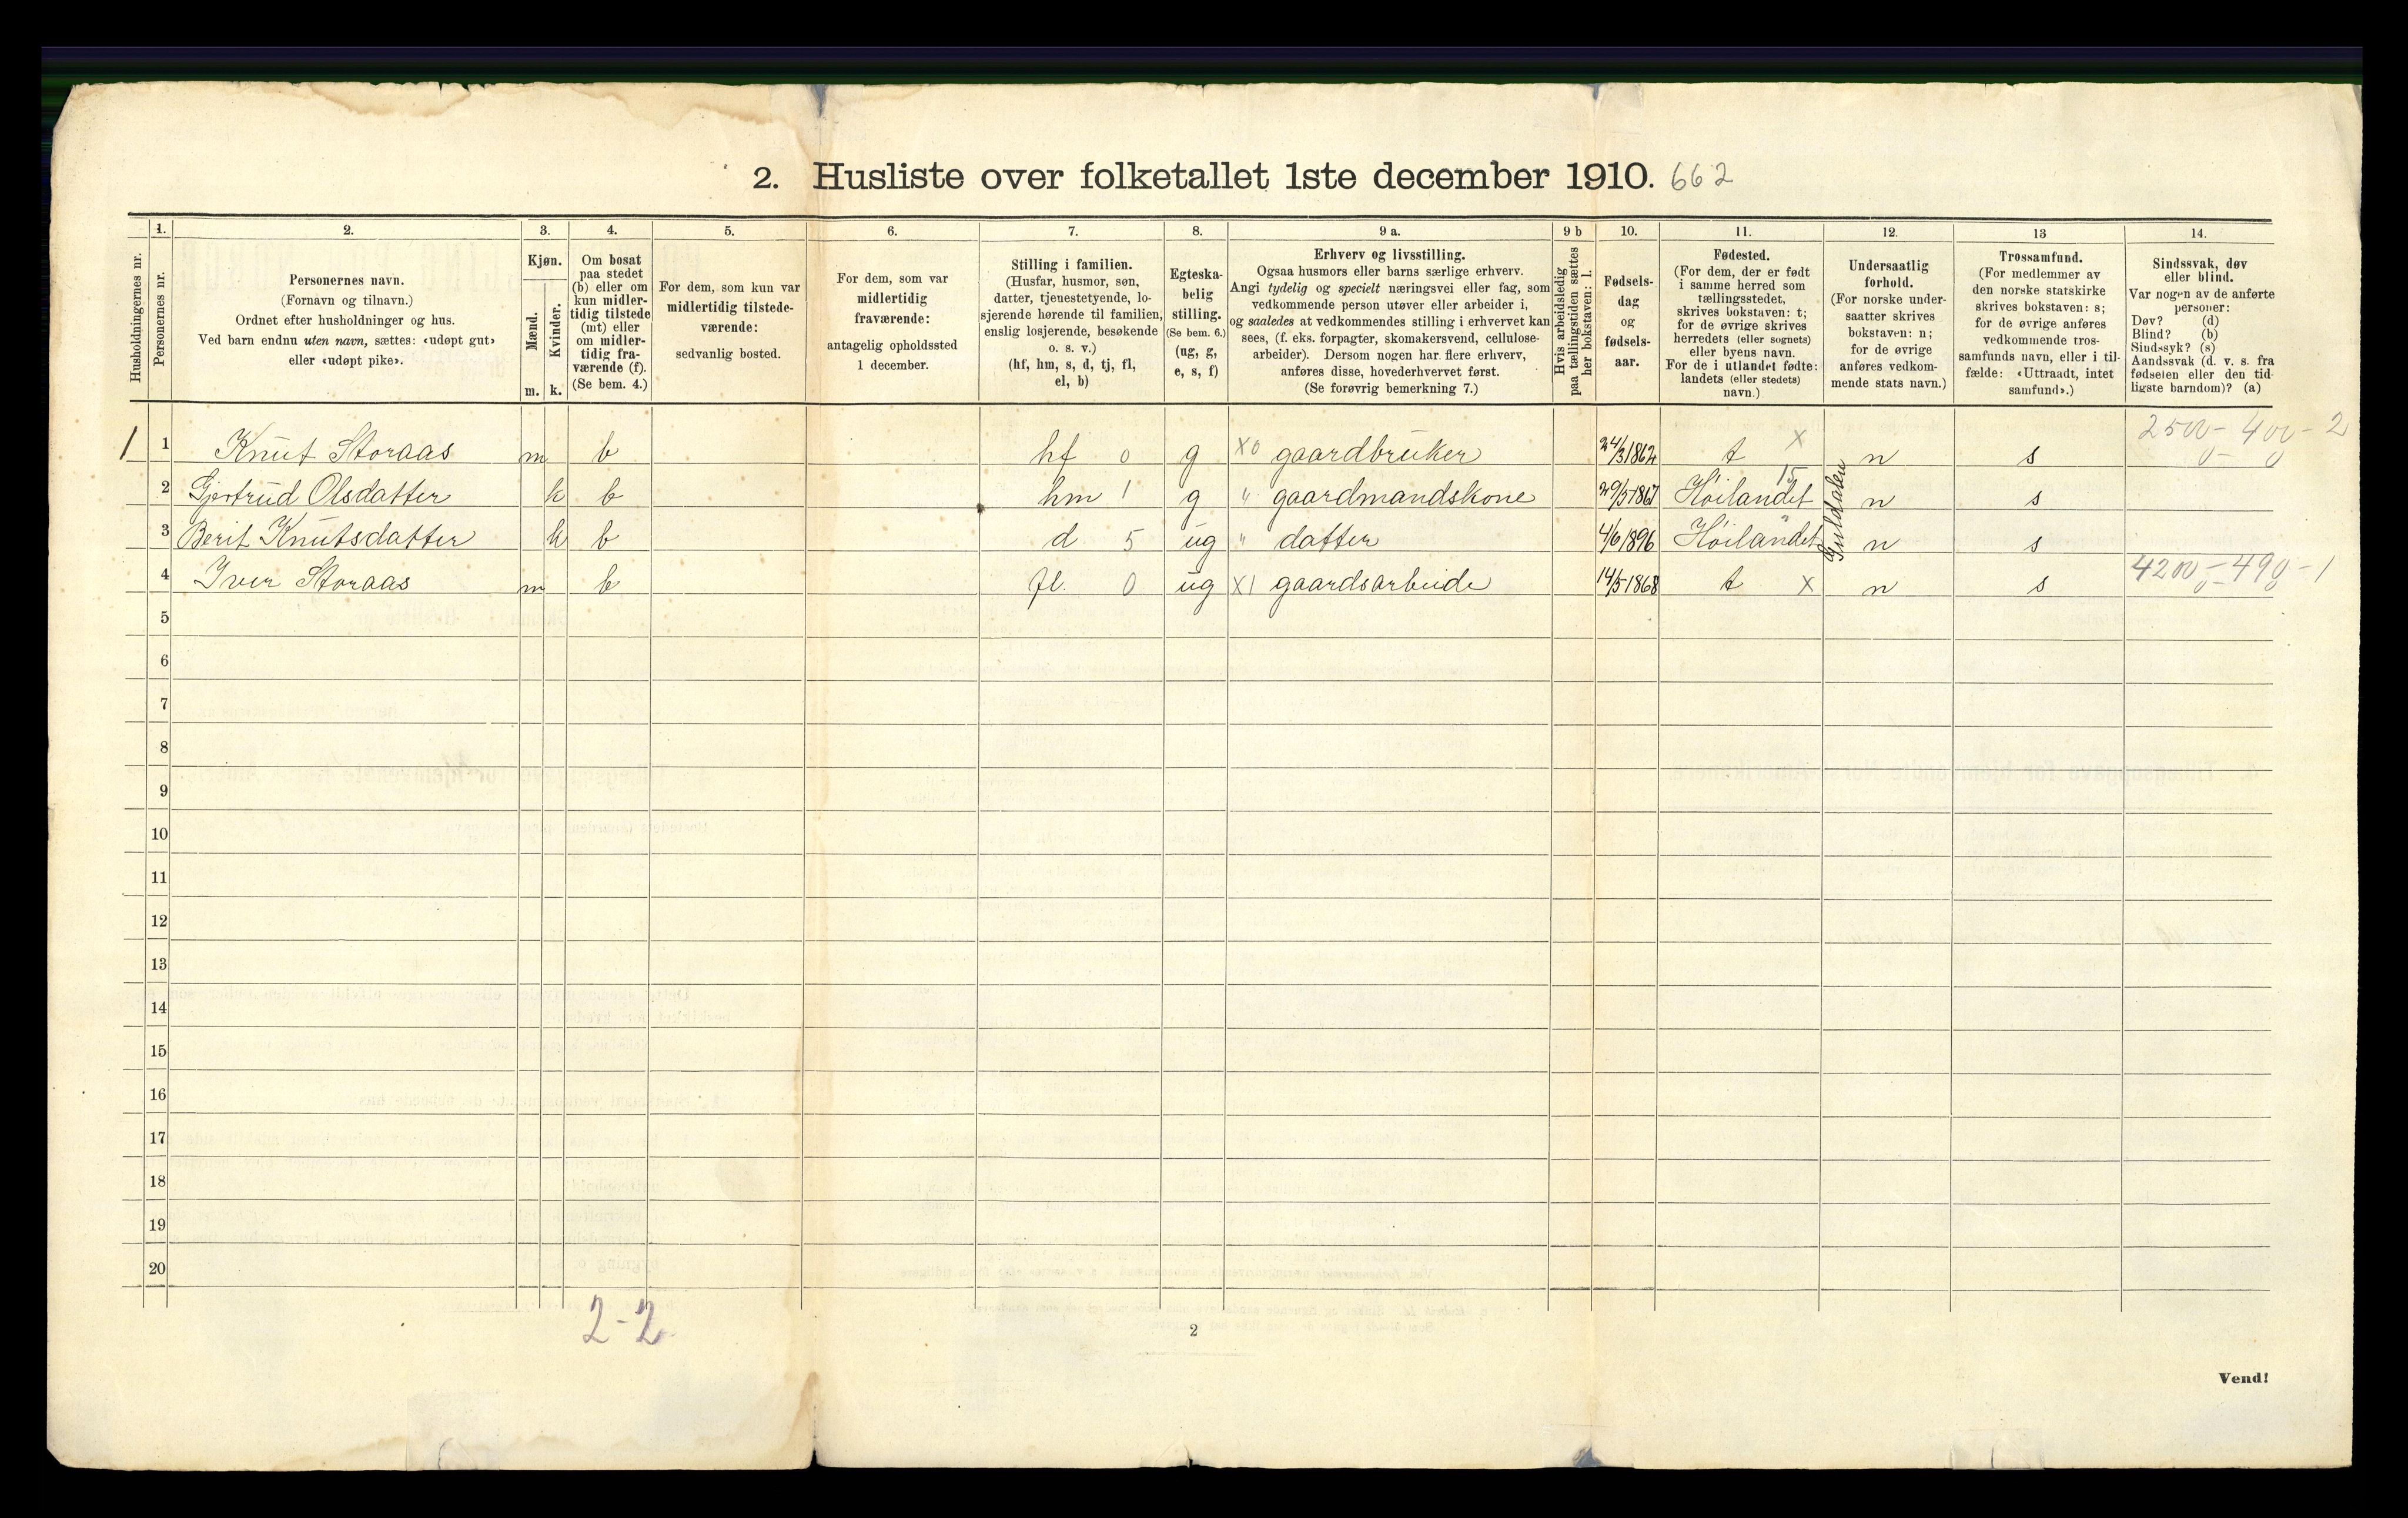 2. Husliste over folketallet 1ste december 1910. 662
1. 2. 3. 4. 5. 6. 7. 8. 9 a. 9 b 10. 11. 12. 13 14.
Husholdningernes nr.
Personernes nr.
Personernes navn.
(Fornavn og tilnavn.)
Ordnet efter husholdninger og hus.
Ved barn endnu uten navn, sættes: «udøpt gut»
eller «udøpt pike».
Kjøn.
Mænd.
Kvinder.
m. k.
Om bosat
paa stedet
(b) eller om
kun midler-
tidig tilstede
(mt) eller
om midler-
tidig fra-
værende (f).
(Se bem. 4.)
For dem, som kun var
midlertidig tilstede-
værende:
sedvanlig bosted.
For dem, som var
midlertidig
fraværende:
antagelig opholdssted
1 december.
Stilling i familien.
(Husfar, husmor, søn,
datter, tjenestetyende, lo-
sjerende hørende til familien,
enslig losjerende, besøkende
o. s. v.)
(hf, hm, s, d, tj, fl,
el, b)
Egteska-
belig
stilling.
(Se bem. 6.)
(ug, g,
e, s, f)
Erhverv og livsstilling.
Ogsaa husmors eller barns særlige erhverv.
Angi tydelig og specielt næringsvei eller fag, som
vedkommende person utøver eller arbeider i,
og saaledes at vedkommendes stilling i erhvervet kan
sees, (f. eks. forpagter, skomakersvend, cellulose-
arbeider). Dersom nogen har flere erhverv,
anføres disse, hovederhvervet først.
(Se forøvrig bemerkning 7.)
Hvis arbeidsledig
paa tællingstiden sættes
her bokstaven: l.
Fødsels-
dag
og
fødsels-
aar.
Fødested.
(For dem, der er født
i samme herred som
tællingsstedet,
skrives bokstaven: t;
for de øvrige skrives
herredets (eller sognets)
eller byens navn.
For de i utlandet fødte:
landets (eller stedets)
navn.)
Undersaatlig
forhold.
(For norske under-
saatter skrives
bokstaven: n;
for de øvrige
anføres vedkom-
mende stats navn.)
Trossamfund.
(For medlemmer av
den norske statskirke
skrives bokstaven: s;
for de øvrige anføres
vedkommende tros-
samfunds navn, eller i til-
fælde: «Uttraadt, intet
samfund».)
Sindssvak, døv
eller blind.
Var nogen av de anførte
personer:
Døv? (d)
Blind? (b)
Sindssyk? (s)
Aandssvak (d. v. s. fra
fødselen eller den tid-
ligste barndom)? (a)
2500 - 400 - 2
0 - 0
1 1 Knut Storaas m b hf 0 g X0 gaardbruker 24/3 1862 t X n s
2 Gjertrud Olsdatter k b hm 1 g " gaardmandskone 29/5 1867 Høilandet 15 n s
Guldalen
3 Berit Knutsdatter k b d 5 ug " datter 4/6 1896 Høilandet " n s
4200 - 490 - 1
0 - 0
4 Iver Storaas m b fl. 0 ug X1 gaardsarbeide 14/5 1868 t X n s
5
6
7
8
9
10
11
12
13
14
15
16
17
18
19
20
2-2
2
Vend!